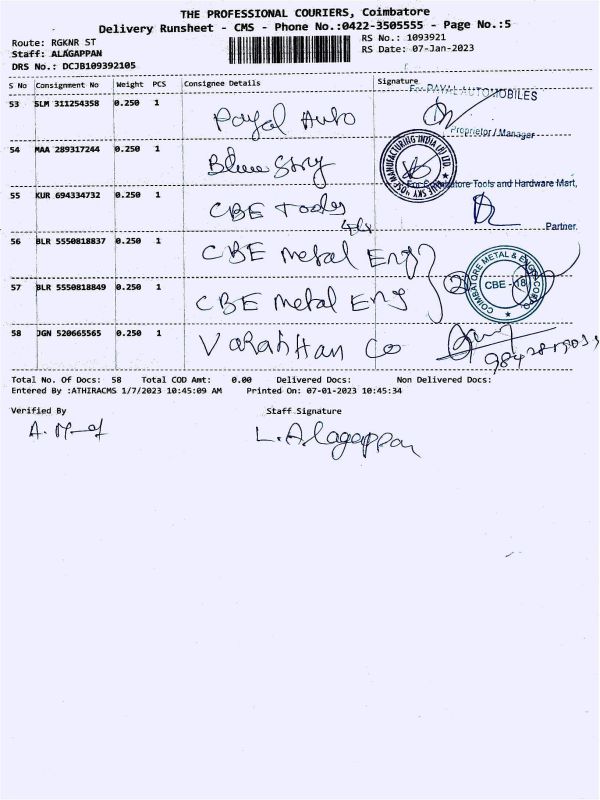 THE PROFESSIONAL COURIERS, Coimbatore
Delivery Runsheet - CMS - Phone No.:0422-3505555 - Page No.:5
Route: RGKNR ST
RS No.: 1093921
Staff: ALAGAPPAN
RS Date: 07-Jan-2023
DRS No.: DCJB109392105
S No Consignment No Weight PCS Consignee Details Signature
For PAYAL AUTOMOBILES
53 SLM 311254358 0.250 1 Payal Auto
Proprietor / Manager
54 MAA 289317244 0.250 1 Blue Sky
BLUE SKY MANUFACTURING INDIA (P) LTD.
For Coimbatore Tools and Hardware Mart,
55 KUR 694334732 0.250 1 CBE Tools
Partner.
56 BLR 5550818837 0.250 1 CBE Metal Eng
COIMBATORE METAL & ENGG. CORPO
CBE - 18
57 BLR 5550818849 0.250 1 CBE Metal Eng
58 JGN 520665565 0.250 1 Varahhan Co
Total No. Of Docs: 58 Total COD Amt: 0.00 Delivered Docs: Non Delivered Docs:
Entered By :ATHIRACMS 1/7/2023 10:45:09 AM Printed On: 07-01-2023 10:45:34
Verified By Staff Signature
L. Alagappan